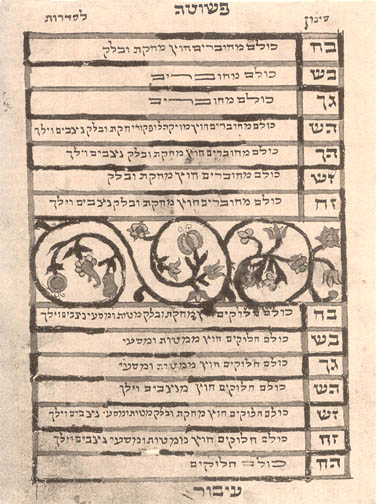 פשוטה
סימון לסדרות
בח כולם מחוברים חוץ מחקת ובלק
בש כולם מחוברים
גך כולם מחוברים
הש כולם מחוברים חוץ חקת ובלק נצבים וילך
הך כולם מחוברים חוץ מחקת ובלק נצבים וילך
זש כולם מחוברים חוץ מחקת ובלק
זח כולם מחוברים חוץ מחקת ובלק נצבים וילך
בח כולם חלוקים חוץ מחקת ובלק מטות ומסעי נצבים וילך
בש כולם חלוקים חוץ ממטות ומסעי
גך כולם חלוקים חוץ ממטות ומסעי
הש כולם חלוקים חוץ מנצבים וילך
זש כולם חלוקים חוץ מחקת ובלק מטות ומסעי נצבים וילך
זח כולם חלוקים חוץ ממטות ומסעי נצבים וילך
הח כולם חלוקים
עיבור